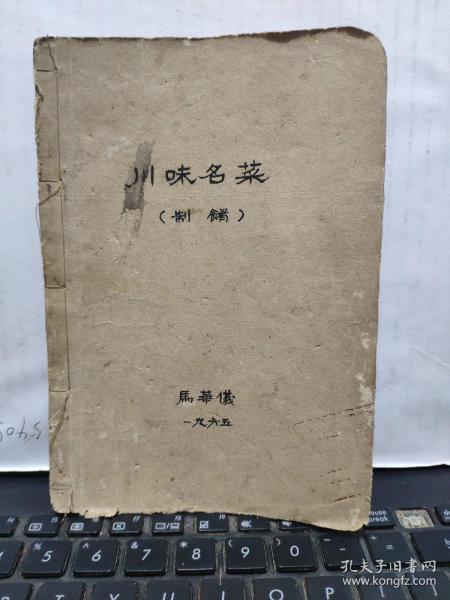 川味名菜
（制餚）
馬華儀
一九六五
5 6 7 8 9 0
孔夫子旧书网
www.kongfz.com